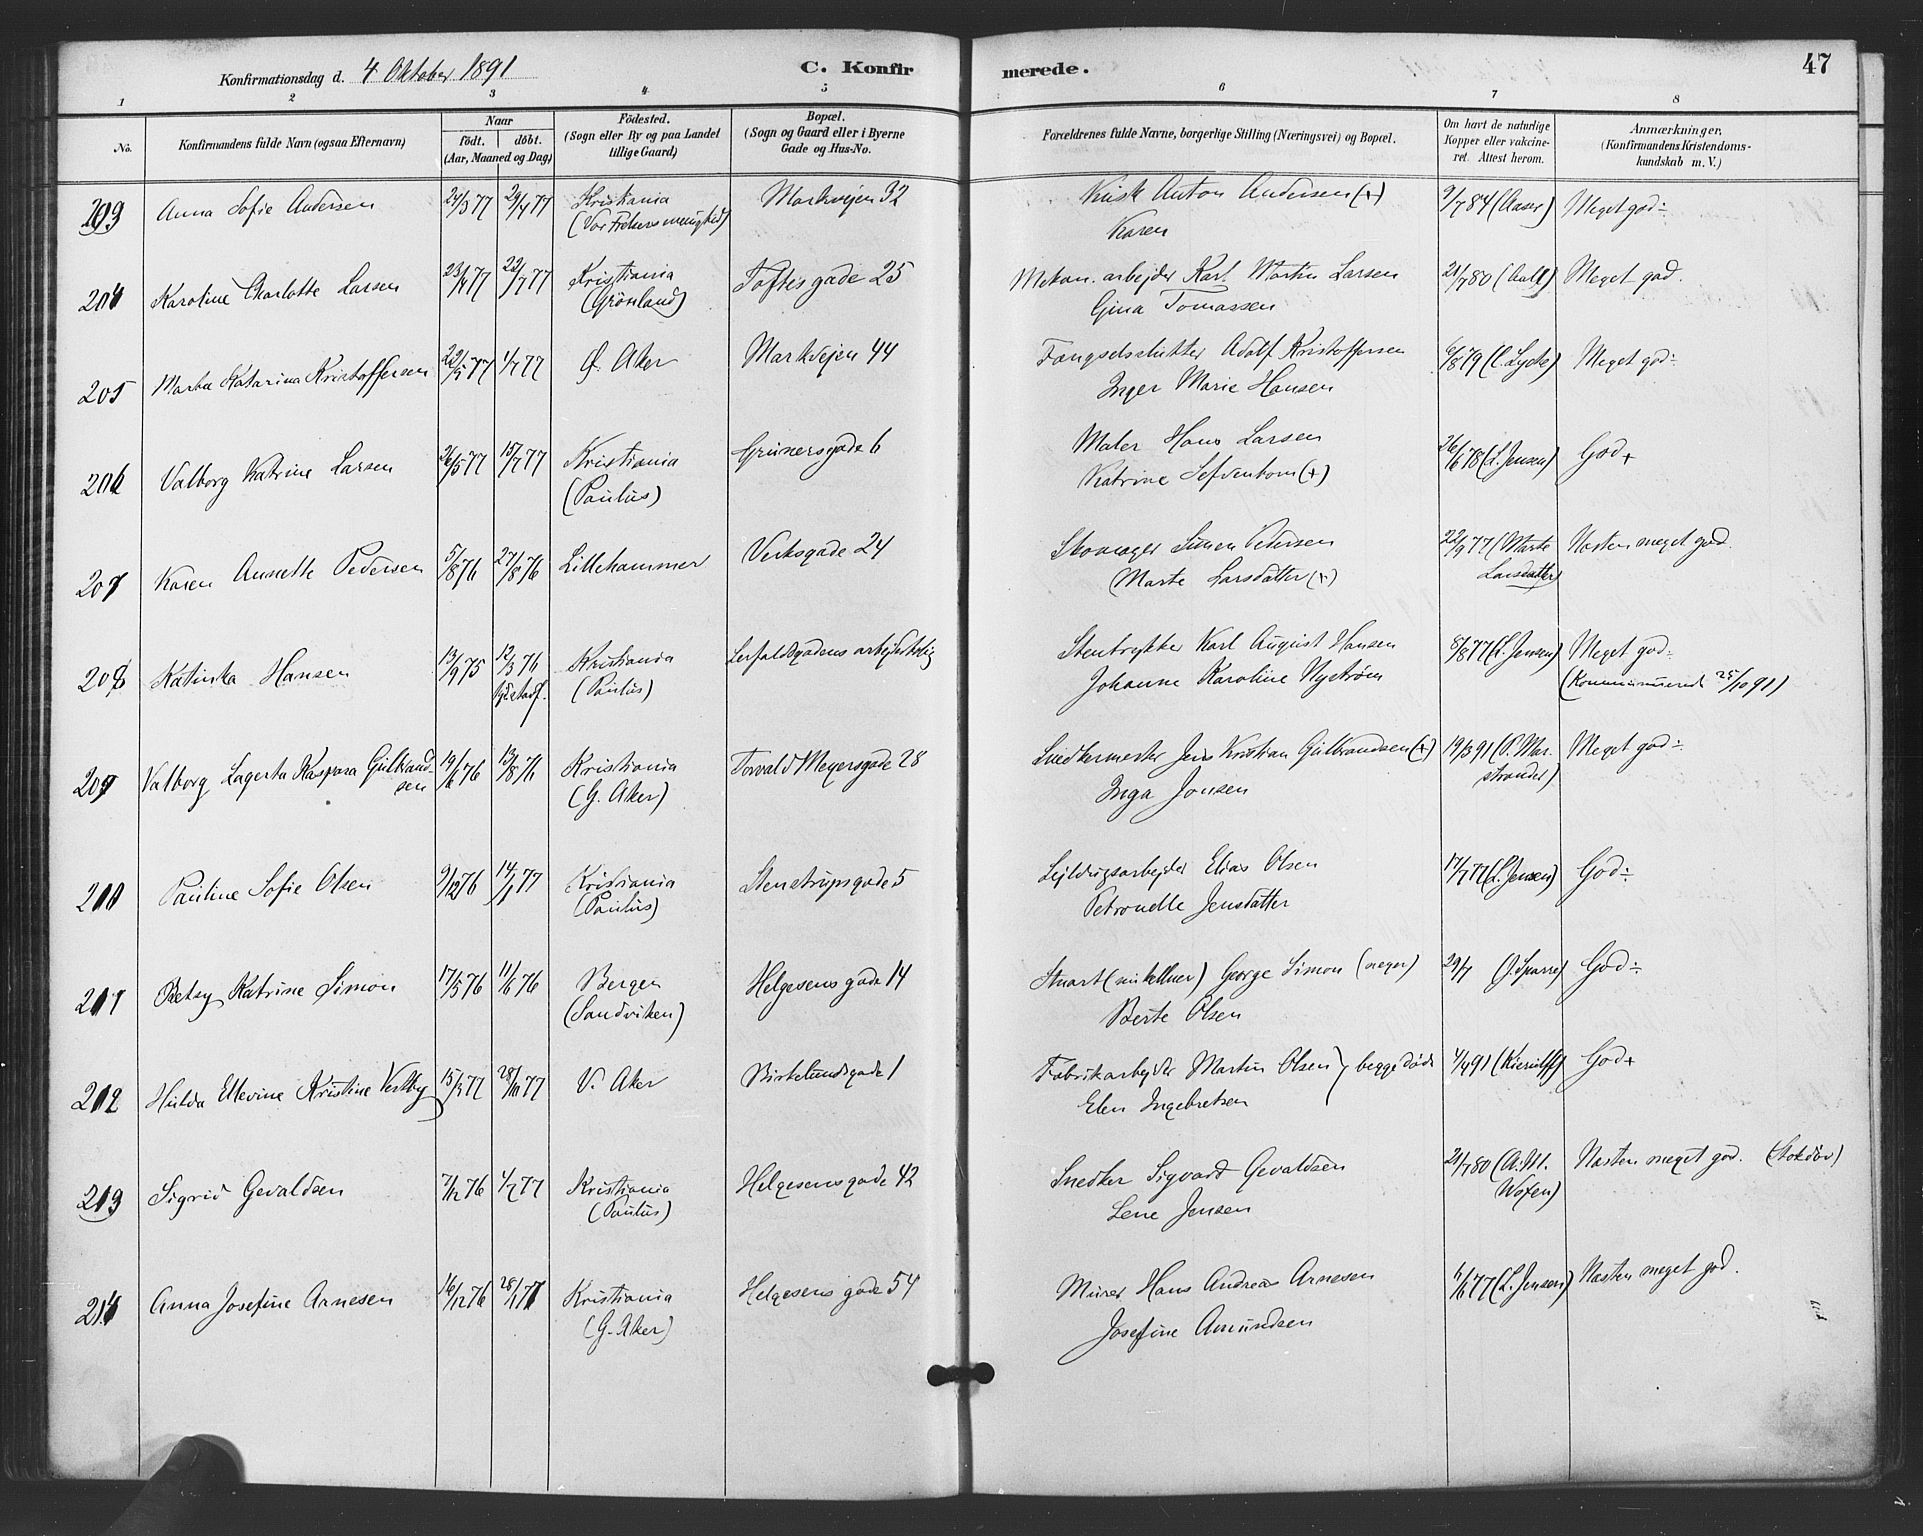 Konfirmationsdag d. 4 Oktober 1891
C. Konfirmerede.
47
1 2 3 4 5 6 7 8
No.
Konfirmandens fulde Navn (ogsaa Efternavn)
Naar
født. døbt.
(Aar, Maaned og Dag)
Fødested.
(Sogn eller By og paa Landet
tillige Gaard)
Bopæl.
(Sogn og Gaard eller i Byerne
Gade og Hus-No.
Forældrenes fulde Navne, borgerlige Stilling (Næringsvei) og Bopæl.
Om havt de naturlige
Kopper eller vakcine-
ret. Attest herom.
Anmærkninger,
(Konfirmandens Kristendoms-
kundskab m. V.)
203 Anna Sofie Andersen 24/3 77 29/4 77 Kristiania Markvejen 32 Kusk Anton Andersen (+) 9/7 84 (Aaser) Meget god ÷
(Vor Frelsers menighed) Karen
204 Karoline Charlotte Larsen 23/4 77 22/7 77 Kristiania Toftesgade 25 Mekan. arbejder Karl Martin Larsen 21/7 80 (Aall) Meget god.
(Grønland) Gina Tomassen
205 Marta Katarina Kristoffersen 22/5 77 1/7 77 Ø. Aker Markvejen 44 Fængselsslutter Adolf Kristoffersen 6/8 79 (C. Lyche) Meget god ÷
Inger Marie Hansen
206 Valborg Katrine Larsen 26/5 77 15/7 77 Kristiania Grünersgade 6 Maler Hans Larsen 26/6 78 (L. Jensen) God +
(Paulus) Katrine (+)
207 Karen Annette Pedersen 5/8 76 27/8 76 Lillehammer Verksgade 24 Skomager Simen Pedersen 22/9 77 (Marte Næsten meget god.
Marte Larsdatter (+) Larsdatter)
208 Katinka Hansen 13/9 75 12/3 76 Kristiania Lerfaldsgadens arbejderbolig Stentrykker Karl August Hansen 8/8 77 (L. Jensen) Meget god ÷
(Paulus) Johanne Karoline Nystrøm (Kommunicerede 25/10 91)
209 Valborg Lagerta Kaspara Gulbrand- 19/6 76 13/8 76 Kristiania Torvald Meyersgade 28 Snedkermester Jens Kristian Gulbrandsen (+) 19/3 91 (P. Mar- Meget god ÷
sen (G. Aker) Inga Jonsen strander)
210 Pauline Sofie Olsen 9/12 76 14/1 77 Kristiania Stenstrupsgade 5 Sejldugsarbejder Elias Olsen 17/7 77 (L. Jensen) God ÷
(Paulus) Petronelle Jensdatter
211 Betsy Katrine Simon 17/5 76 11/6 76 Bergen Helgesensgade 14 Stuart George Simon (neger) 29/7 (J. Sparre) God ÷
(Sandviken) Berte Olsen
212 Hilda Ellevine Kristine Vestby 15/3 77 28/10 77 V. Aker Birkelundsgade 1 Fabrikarbejder Martin Olsen } begge døde 4/4 91 (Kierulff) God +
Elen Ingebretsen
213 Sigrid Gevaldsen 7/12 76 4/2 77 Kristiania Helgesensgade 42 Snedker Sigvard Gevaldsen 21/7 80 (A. M. Næsten meget god. (Stokdøv)
(Paulus) Lene Jensen
214 Anna Josefine Arnesen 16/12 76 28/1 77 Kristiania Helgesens gade 54 Murer Hans Andreas Arnesen 11/6 77 (L. Jensen) Næsten meget god.
(G. Aker) Josefine Amundsen